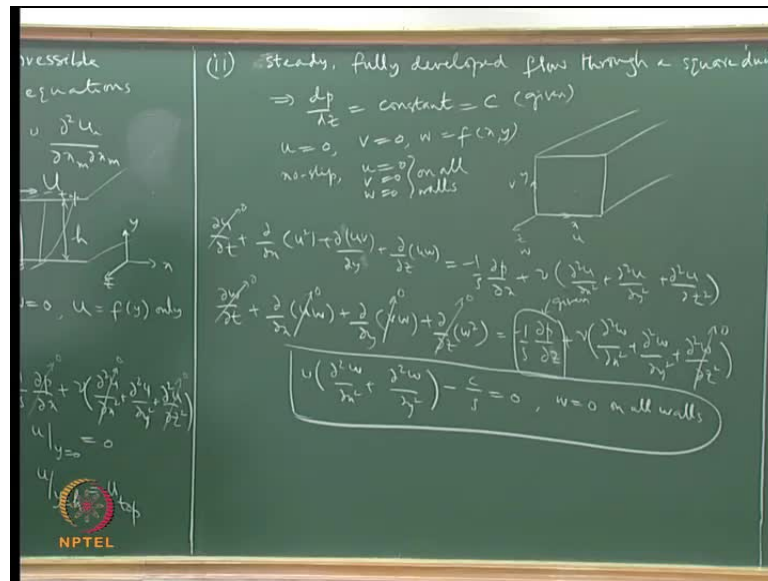 vressible
equations
υ ∂²u_i / ∂x_m ∂x_m
U_top
h
y
x
z
v=0, u = f(y) only
1/ρ ∂p/∂x →0 + ν(∂²u/∂x² →0 + ∂²u/∂y² + ∂²u/∂z² →0)
u|y=0 = 0
u|y=h = U_top
(ii) steady, fully developed flow through a square du
⇒ dp/dz = constant = C (given)
u = 0, v = 0, w = f(x,y)
no-slip, u=0 v=0 w=0 } on all walls
v y
x
u
z
w
∂u/∂t →0 + ∂/∂x (u²) + ∂(uv)/∂y + ∂/∂z (uw) = -1/ρ ∂p/∂x + ν(∂²u/∂x² + ∂²u/∂y² + ∂²u/∂z²)
given
∂w/∂t →0 + ∂/∂x (uw) →0 + ∂/∂y (vw) →0 + ∂/∂z (w²) →0 = -1/ρ ∂p/∂z + ν(∂²w/∂x² + ∂²w/∂y² + ∂²w/∂z² →0)
ν(∂²w/∂x² + ∂²w/∂y²) - C/ρ = 0, w=0 on all walls
NPTEL